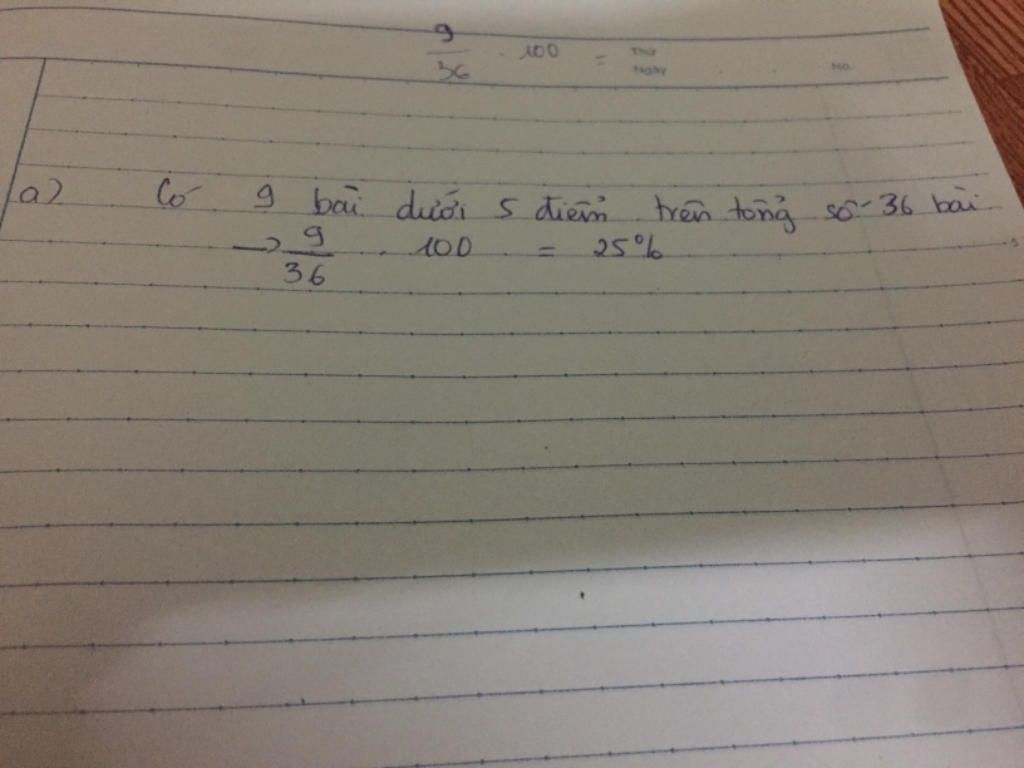 9/36 . 100 =
Thứ
Ngày
No.
a) Có 9 bài dưới 5 điểm trên tổng số 36 bài
→ 9/36 . 100 = 25%